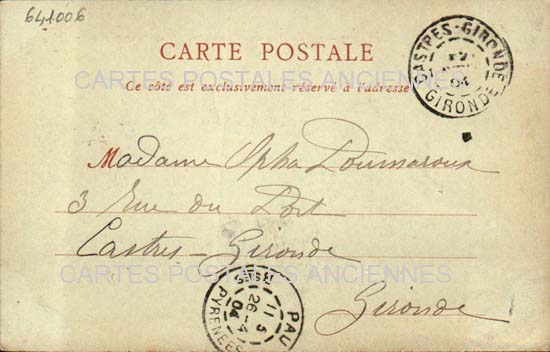 641006
CARTE POSTALE
CARTES POSTALES ANCIENNES
Ce côté est exclusivement réservé à l'adresse
CASTRES-GIRONDE
04
GIRONDE
Madame Opha Doumaroux
3 Rue du Port
Castres-Gironde
CARTES POSTALES ANCIENNES
Gironde
PAU
11 5
26-4
04
PYRENEES